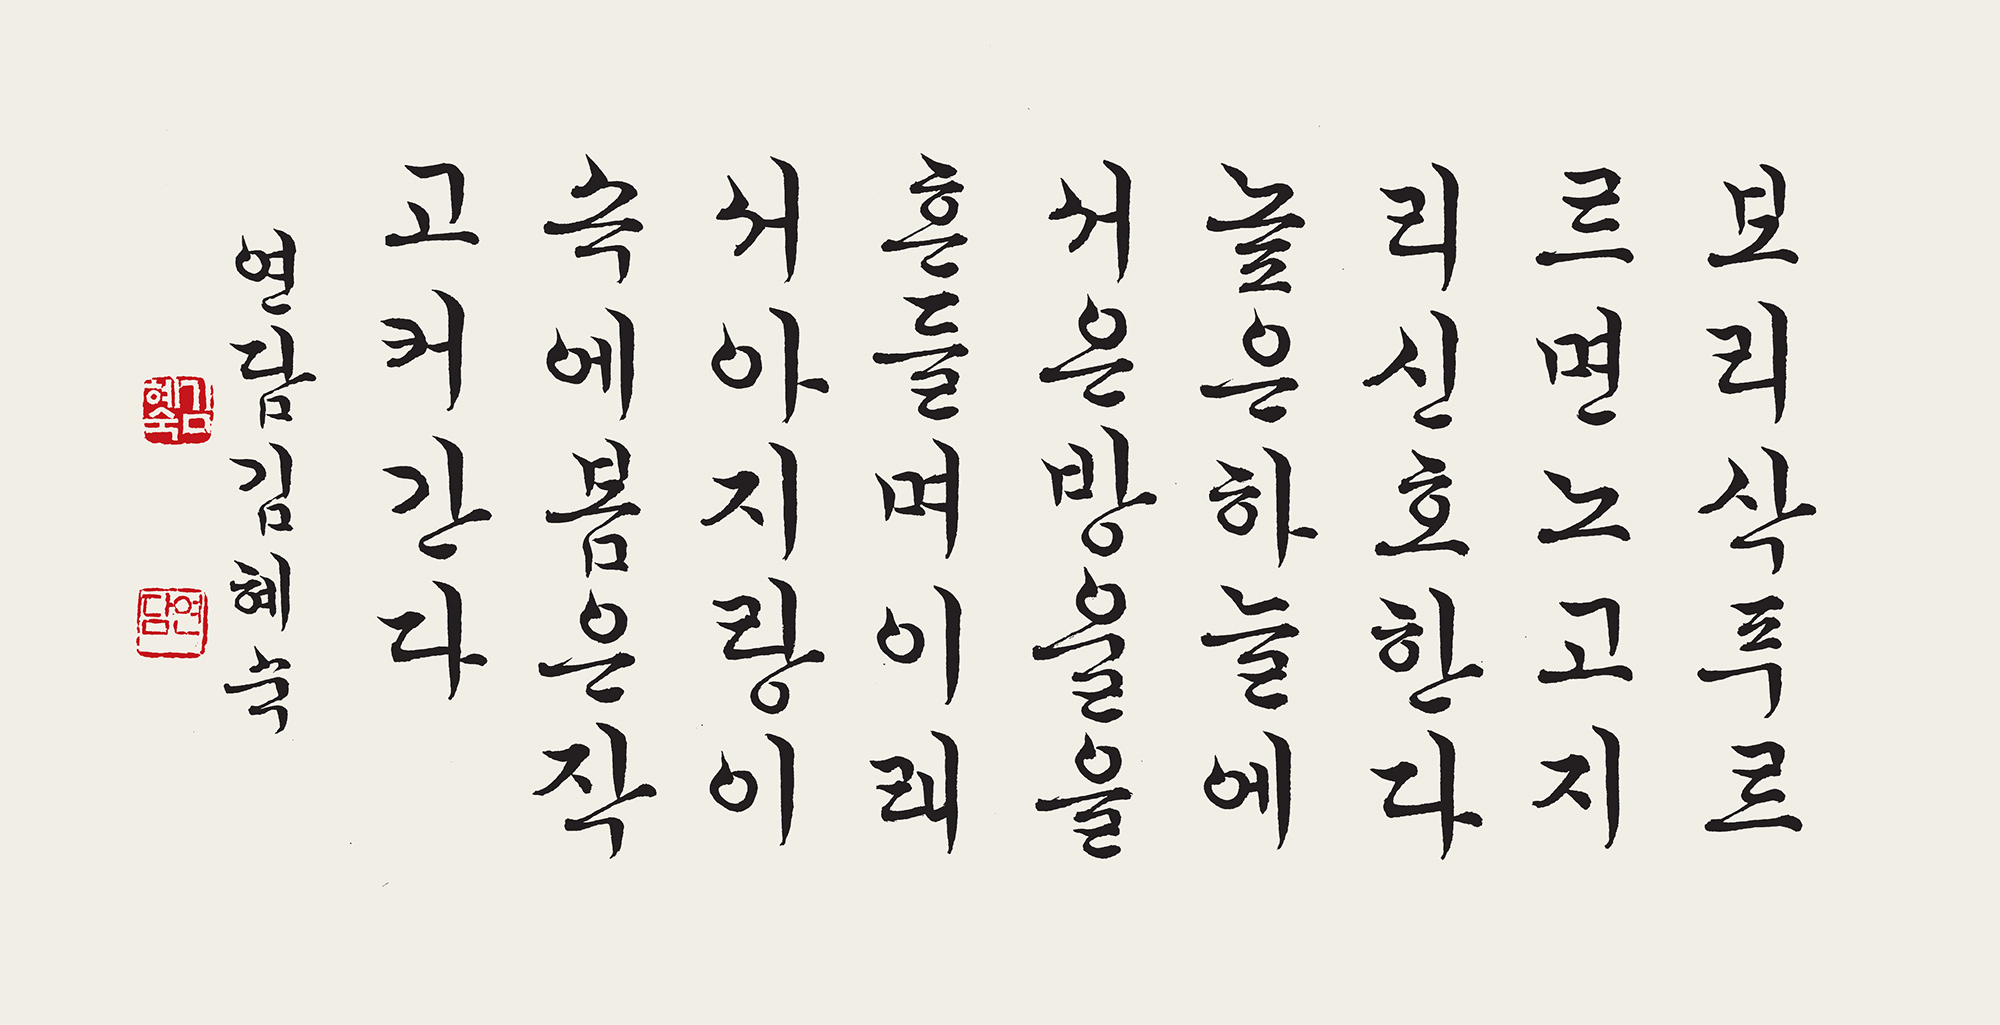 보리삭푸르
르면노고지
리신호한다
높은하늘에
서은방울을
흔들며이래
서아지랑이
숙에봄은작
고커간다
연담김혜숙
김혜숙
연담